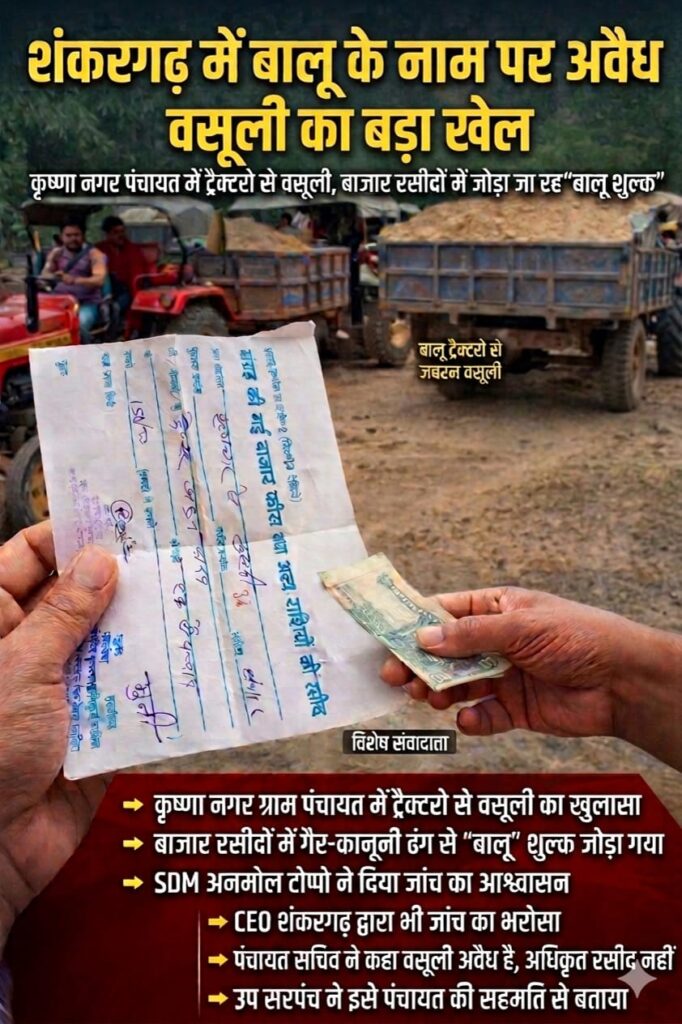 शंकरगढ़ में बालू के नाम पर अवैध
वसूली का बड़ा खेल
कृष्णा नगर पंचायत में ट्रैक्टरो से वसूली, बाजार रसीदों में जोड़ा जा रह “बालू शुल्क”
बालू ट्रैक्टरो से
जबरन वसूली
संग्रह की गई बाजार फीस तथा अन्य राशियों की रसीद
विशेष संवादाता
→ कृष्णा नगर ग्राम पंचायत में ट्रैक्टरो से वसूली का खुलासा
→ बाजार रसीदों में गैर-कानूनी ढंग से “बालू” शुल्क जोड़ा गया
→ SDM अनमोल टोप्पो ने दिया जांच का आश्वासन
→ CEO शंकरगढ़ द्वारा भी जांच का भरोसा
→ पंचायत सचिव ने कहा वसूली अवैध है, अधिकृत रसीद नहीं
→ उप सरपंच ने इसे पंचायत की सहमति से बताया